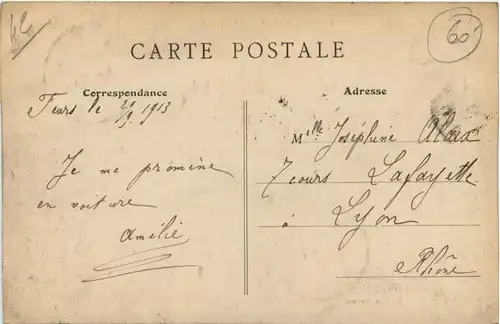 42
60
CARTE POSTALE
Correspondance
Feurs le 29/9 1913
Je me promène
en voiture
Amélie
Adresse
Melle Joséphine
7 cours Lafayette
à Lyon
Rhône